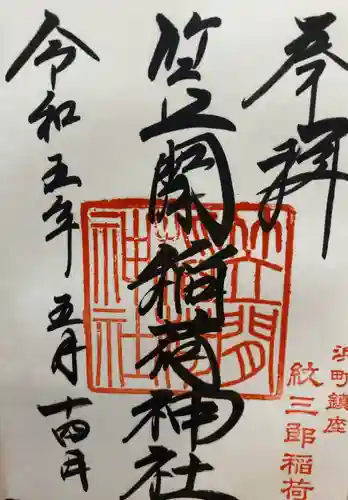 奉拝
浜町鎮座
紋三郎稲荷
笠間稲荷神社
笠間稲荷神社
令和五年五月十四日